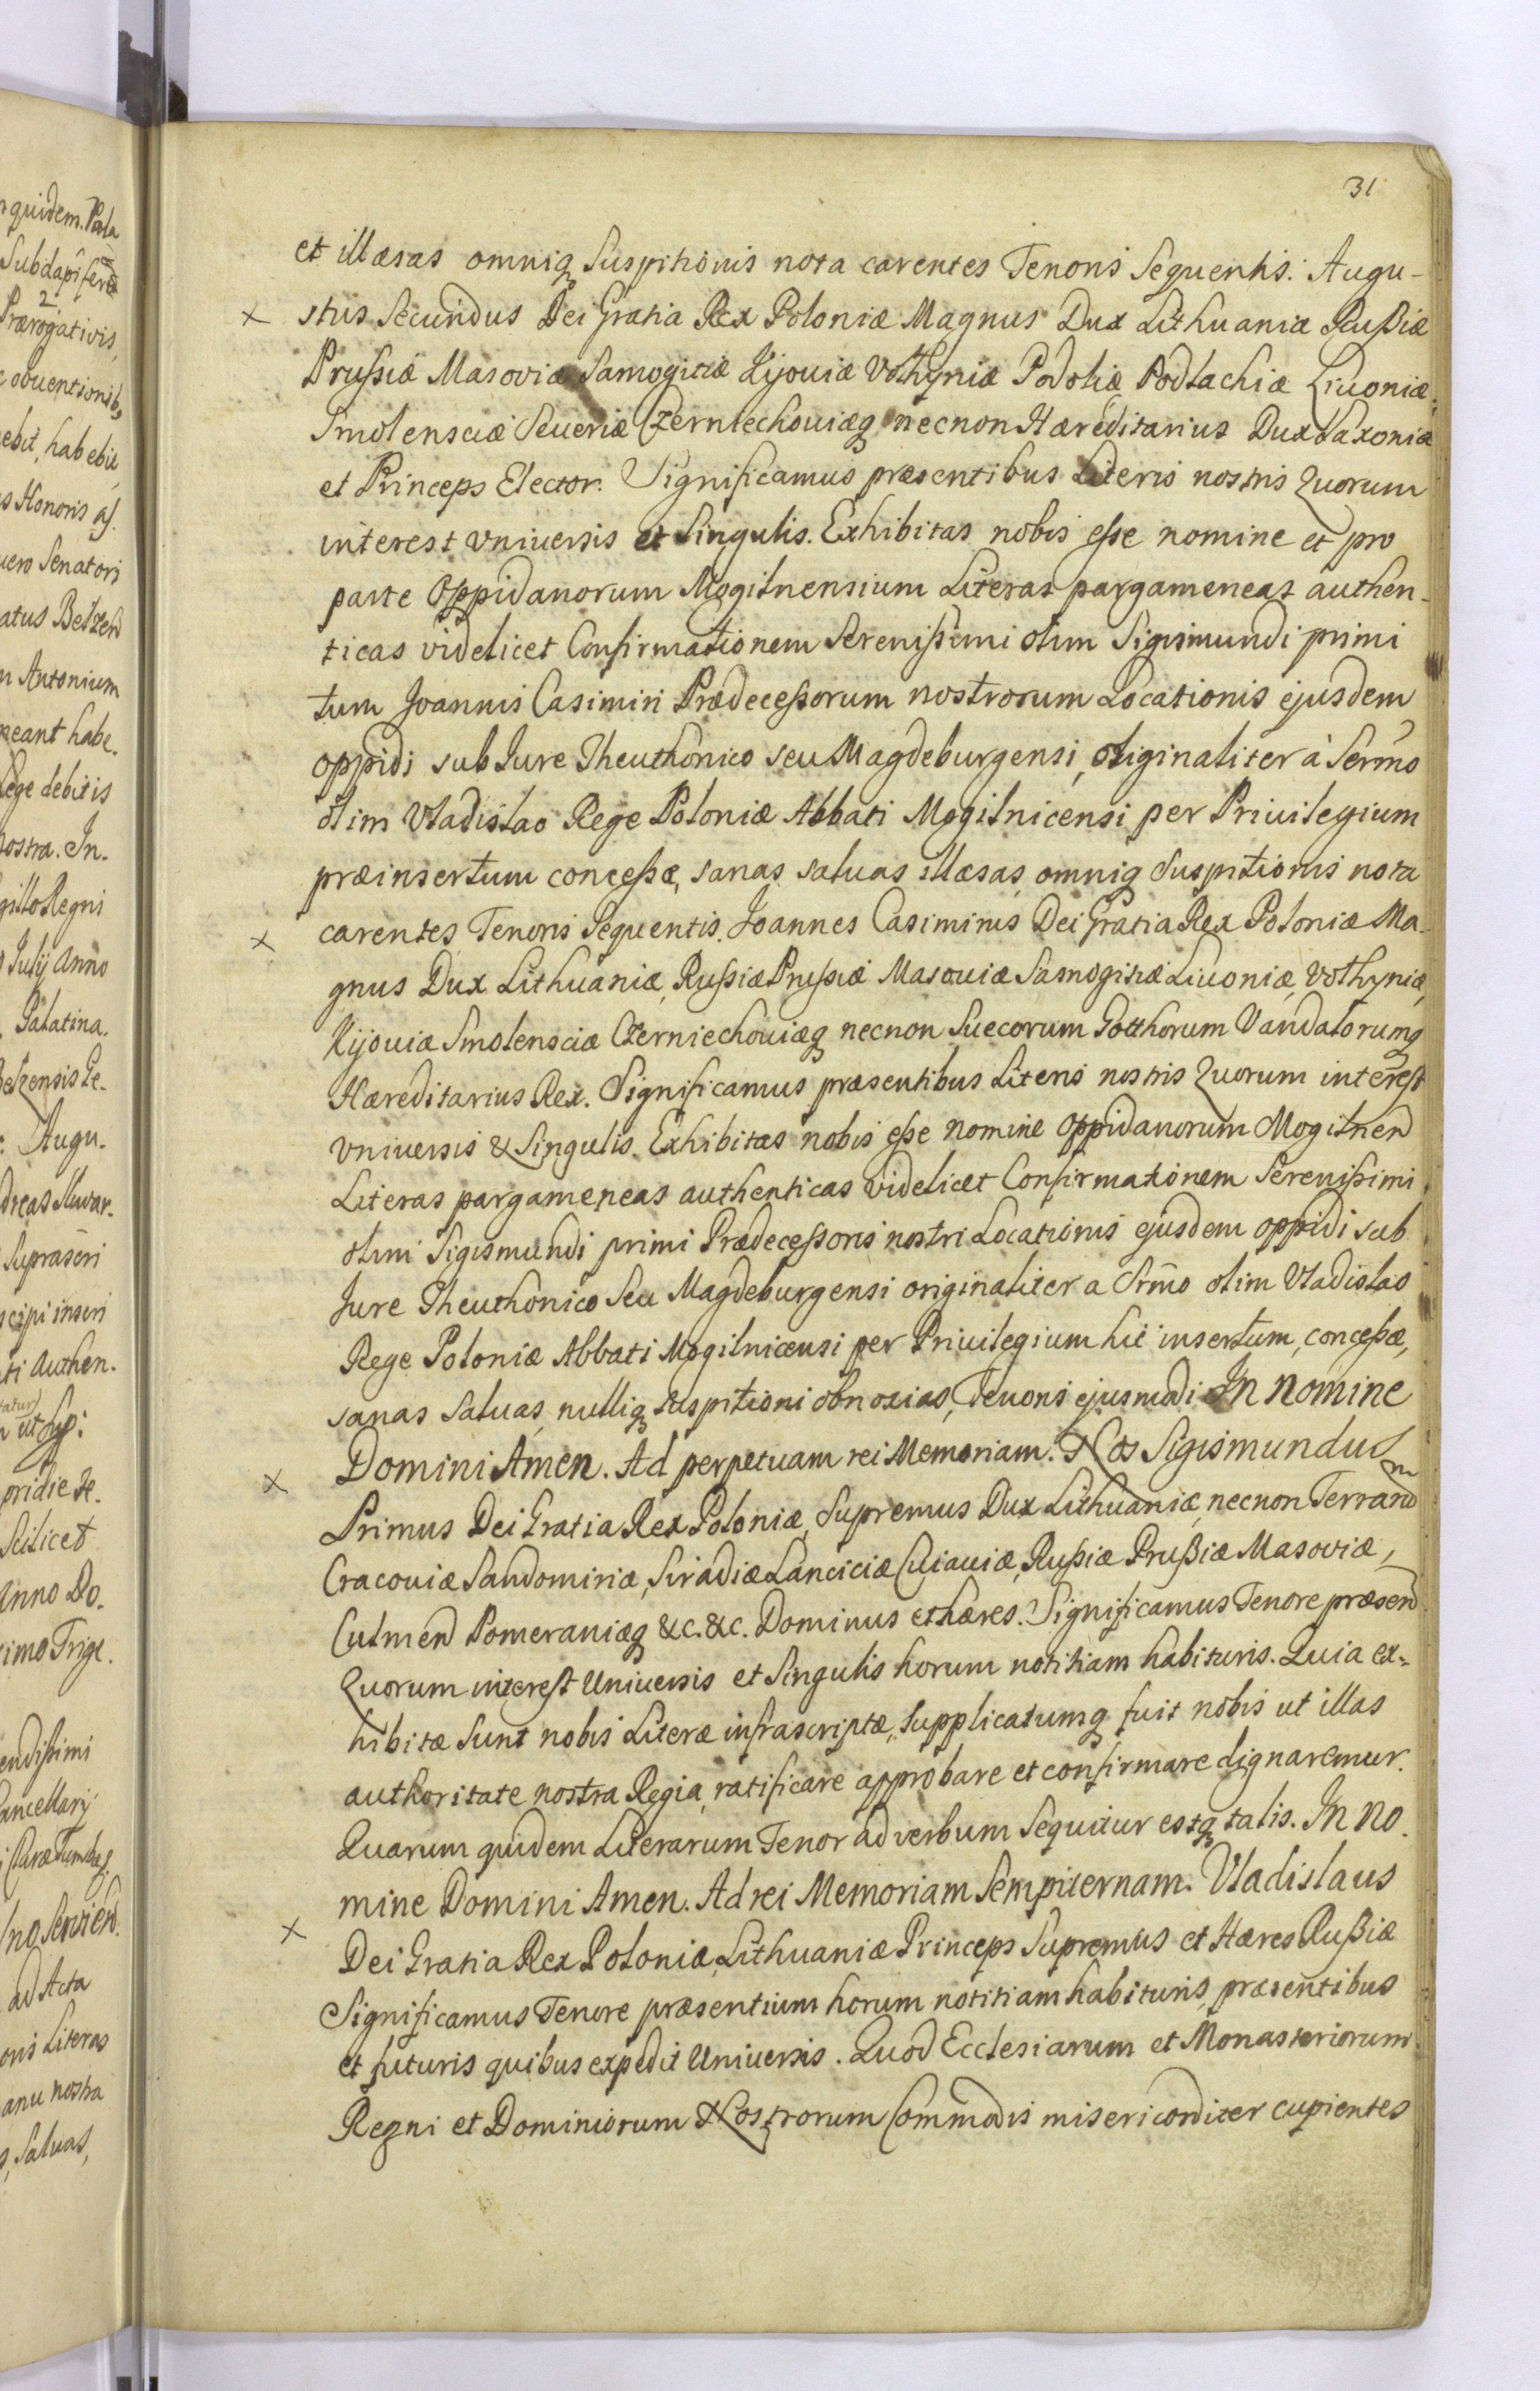 31
et illæsas omniq suspitionis nota carentes Tenoris Sequentis. Augu-
stus Secundus Dei Gratia Rex Poloniæ Magnus Dux Lithuaniæ Rußiæ
Prussiæ Masoviæ Samogitiæ Kijouiæ Volhyniæ Podoliæ Podlachiæ Liuoniæ
Smolensciæ Seueriæ Czerniechouiæq necnon Hæreditarius Dux Saxoniæ
et Princeps Elector. Significamus præsentibus Literis nostris Quorum
interest vniuersis et Singulis. Exhibitas nobis esse nomine et pro
parte Oppidanorum Mogilnensium Literas pargameneas authen-
ticas videlicet Confirmationem Serenissimi olim Sigismundi primi
tum Joannis Casimiri Prædecessorum nostrorum Locationis ejusdem
oppidi sub Jure Theuthonico seu Magdeburgensi, originaliter à Sermo
olim Vladislao Rege Poloniæ Abbati Mogilnicensi per Priuilegium
præinsertum concessæ, sanas saluas illæsas omniq suspitionis nota
carentes Tenoris Sequentis. Joannes Casimirus Dei Gratia Rex Poloniæ Ma-
gnus Dux Lithuaniæ, Russiæ Prussiæ Masouiæ Samogitiæ Liuoniæ, Volhyniæ,
Kijouiæ Smolensciæ Czerniechouiæq necnon Suecorum Gotthorum Vandalorumq
Hæreditarius Rex. Significamus præsentibus Literis nostris Quorum interest
vniuersis & Singulis. Exhibitas nobis esse nomine Oppidanorum Mogilnen
Literas pargameneas authenticas videlicet Confirmationem Serenissimi
olim Sigismundi primi Prædecessoris nostri Locationis ejusdem oppidi sub
Jure Theuthonico seu Magdeburgensi originaliter a Srmo olim Vladislao
Rege Poloniæ Abbati Mogilnicensi per Priuilegium hic insertum, concessæ,
sanas saluas, nulliq suspitioni obnoxias, Tenoris ejusmodi In Nomine
Domini Amen. Ad perpetuam rei Memoriam. Nos Sigismundus
Primus Dei Gratia Rex Poloniæ, Supremus Dux Lithuaniæ, necnon Terrarum
Cracouiæ Sandomiriæ, Siradiæ Lanciciæ Cuiauiæ, Russiæ Prußiæ Masoviæ,
Culmen Pomeraniæq &c. &c. Dominus et hæres. Significamus Tenore præsen
Quorum interest Uniuersis et Singulis horum notitiam habituris. Quia ex-
hibitæ Sunt nobis Literæ infrascriptæ, supplicatumq fuit nobis ut illas
authoritate nostra Regia, ratificare approbare et confirmare dignaremur.
Quarum quidem Literarum Tenor ad verbum Sequitur estq talis. In No
mine Domini Amen. Ad rei Memoriam Sempiternam. Vladislaus
Dei Gratia Rex Poloniæ, Lithuaniæ Princeps Supremus et Hæres Rußiæ
Significamus Tenore præsentium horum notitiam habituris præsentibus
et futuris quibus expedit Uniuersis. Quod Ecclesiarum et Monasteriorum
Regni et Dominiorum Nostrorum Commodis misericorditer cupientes